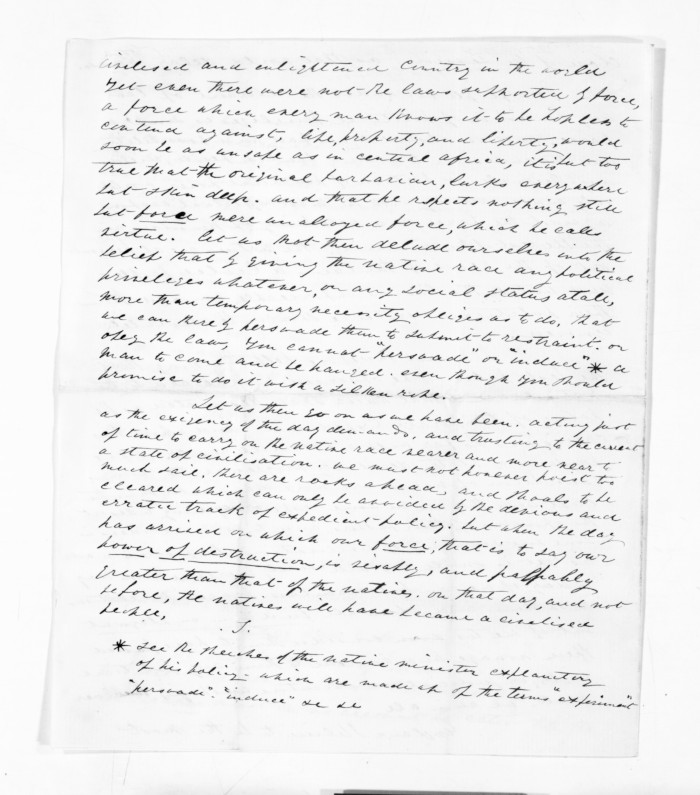 civilised and enlightened country in the world
yet even there were not the laws supported by force,
a force which every man knows it to be hopless to
contend against, life, property, and liberty, would
soon be as unsafe as in central africa, it is but too
true that the original barbarian, lurks everywhere
but skin deep. and that he respects nothing still
but force mere unaloyed force, which he calls
virtue. let us not then delude ourselves into the
belief that by giving the native race any political
priveleges whatever, or any social status at all,
more than temporary necessity obliges as to do, that
we can thereby perswade them to submit to restraint. or
obey the laws, you cannot "perswade" or "induce" * a
man to come and be hanged. even though you should
promise to do it with a silken rope.
Let us then go on as we have been. acting just
as the exigency of the day demands, and trusting to the current
of time to carry on the native race nearer and more near to
a state of civilisation. we must not however hoist too
much sail. there are rocks ahead, and shoals to be
cleared which can only be avoided by the devious and
erratic track of expedient policy. but when the day
has arrived on which our force, that is to say our
power of destruction, is visably, and palpably
greater than that of the natives. on that day, and not
before, the natives will have became a civilised
people,
J.
* see the speeches of the native minister explanatory
of his policy - which are made up of the terms "experiment"
"perswade". "induce" &c &c